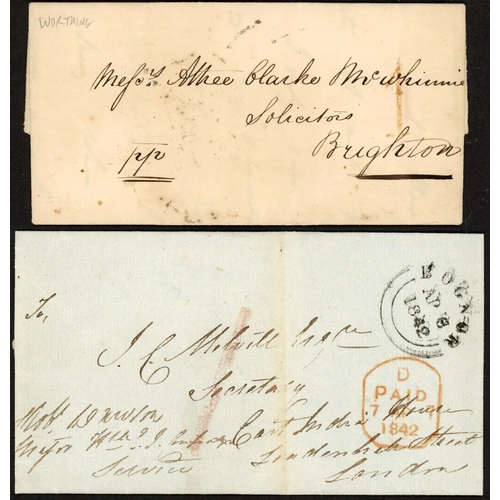 WORTHING
Messrs. Attree Clarke McWhinnie
Solicitors
Brighton
pp
BOGNOR
AP 6
1842
To,
J. C. Melvill Esqre
Secretary
East India House
Leadenhall Street
London
D
PAID
7
1842
Robt Dawson
Major
Service